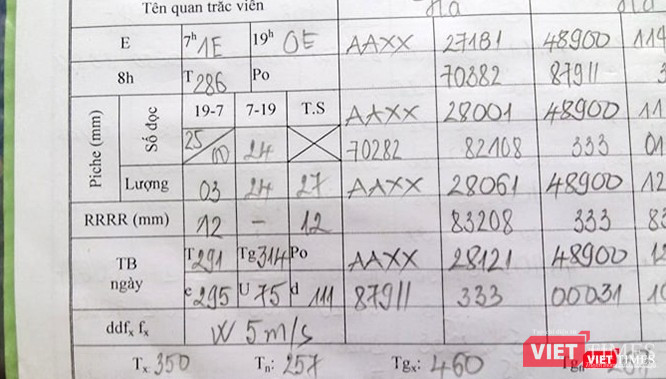 Tên quan trắc viên Ha
E 7h 1E 19h 0E AAXX 27181 48900 114
8h T 286 Po 70382 87911 3
Piche (mm) Số đọc 19-7 7-19 T.S AAXX 28001 48900 11
25/00 24 70282 82108 333 01
Lượng 03 24 27 AAXX 28061 48900 12
RRRR (mm) 12 - 12 83208 333 83
TB ngày T 291 Tg 314 Po AAXX 28121 48900 12
e 295 U 75 d 111 87911 333 00031 10
ddfx fx W 5m/s
Tx: 350 Tn: 257 Tgx: 460 Tgn
VIETTIMES
VIETTIMES